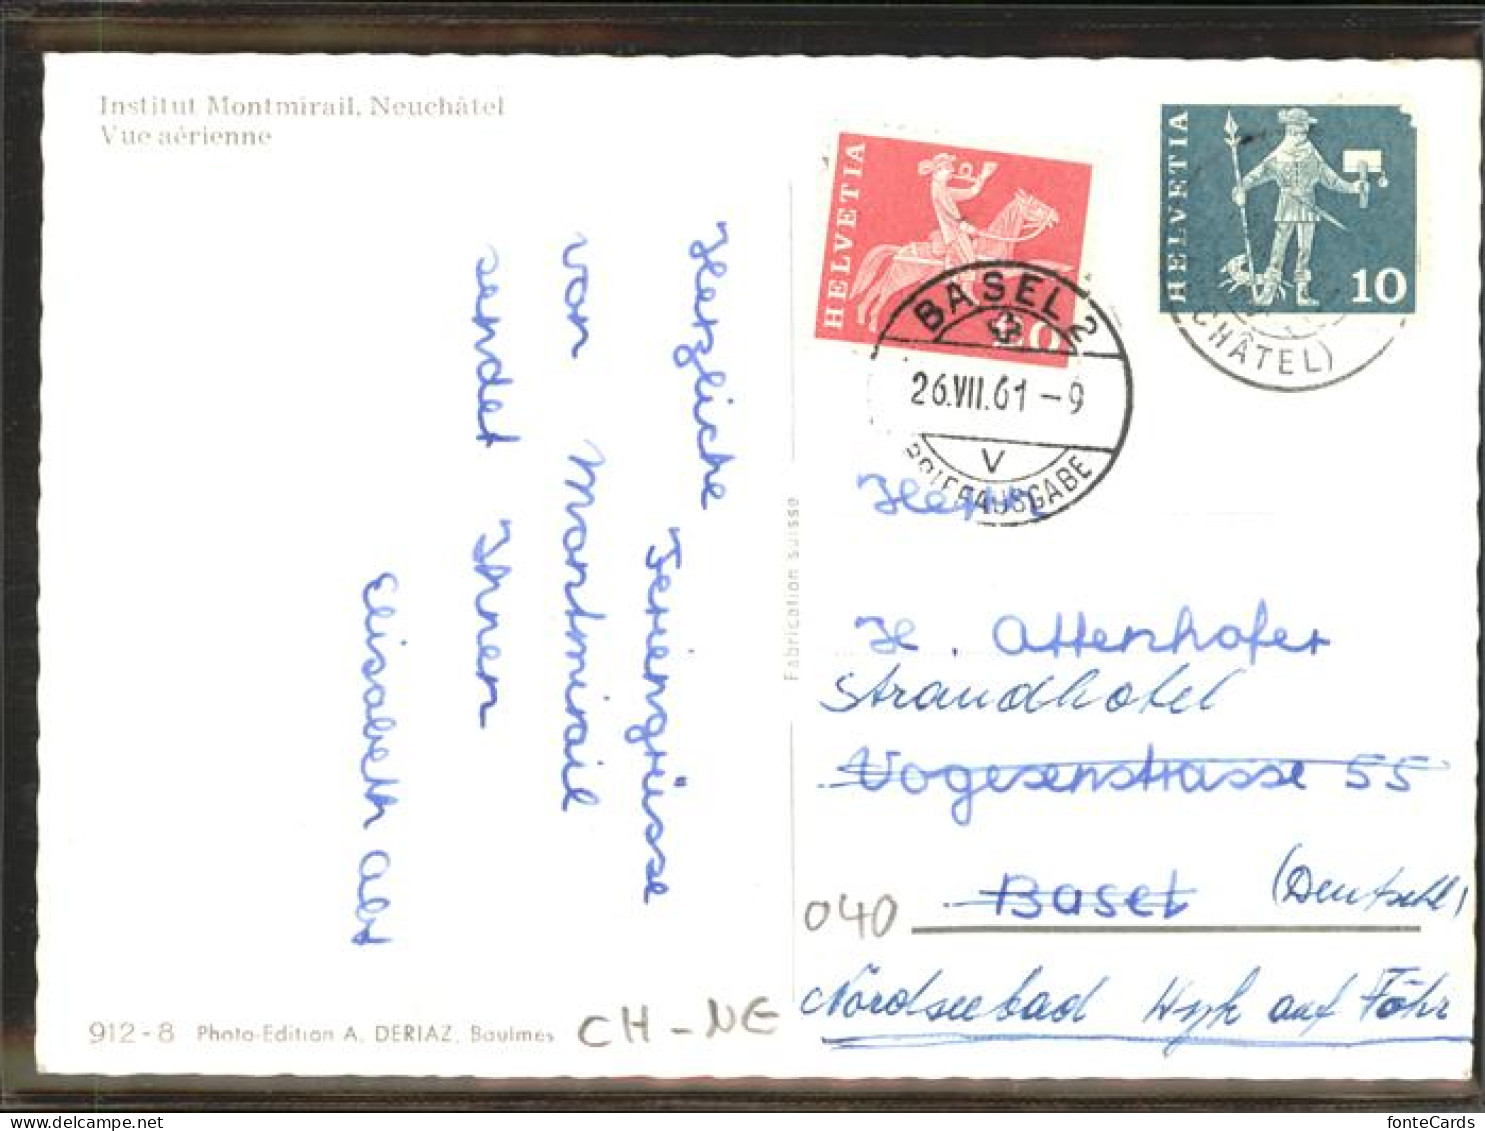 Institut Montmirail, Neuchâtel
Vue aérienne
Herzliche
Feriengrüsse
von Montmirail
sendet Ihnen
Elisabeth Abt
912-8 Photo-Edition A. DERIAZ, Baulmes
CH-NE
Fabrication suisse
HELVETIA
20
HELVETIA
10
BASEL 2
26.VII.61-9
V
BRIEFAUSGABE
CHÂTEL)
Herrn
H. Attenhofer
Strandhotel
Vogesenstrasse 55
Basel
(Deutschl)
040
Nordseebad Wyk auf Föhr
fonteCards